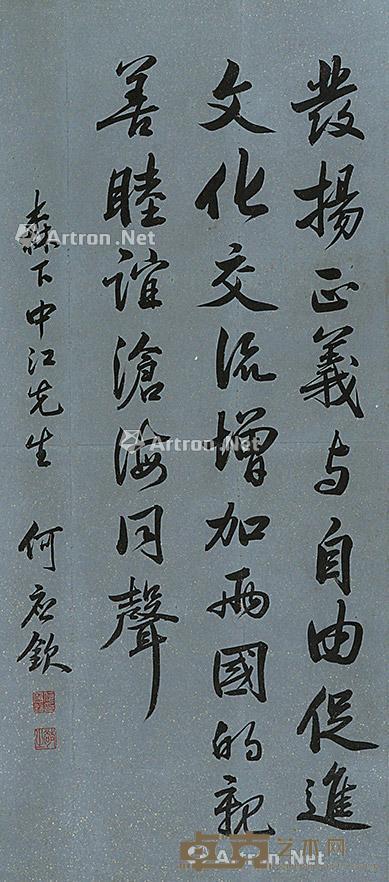 發揚正義与自由促進
文化交流增加兩國的親
善睦誼滄海同聲
森下中江先生 何应欽
Artron.Net
Artron.Net
Artron.Net
卓克艺术网